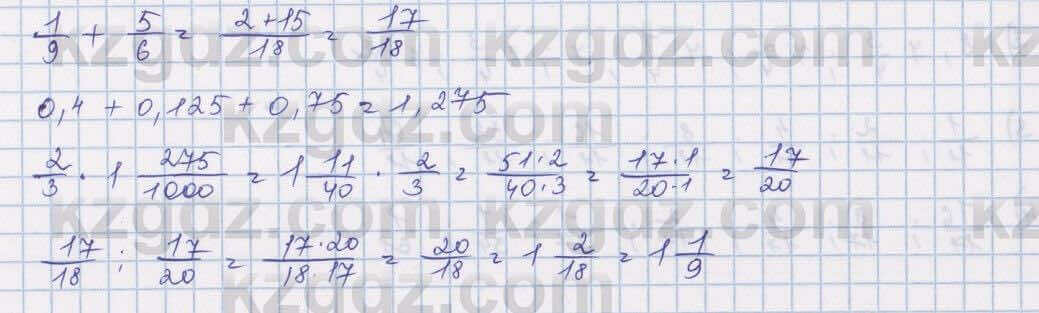 1/9 + 5/6 = (2+15)/18 = 17/18
0,4 + 0,125 + 0,75 = 1,275
2/3 · 1 275/1000 = 1 11/40 · 2/3 = (51·2)/(40·3) = (17·1)/(20·1) = 17/20
17/18 : 17/20 = (17·20)/(18·17) = 20/18 = 1 2/18 = 1 1/9
kzgdz.com
kzgdz.com
kzgdz.com
kzgdz.com